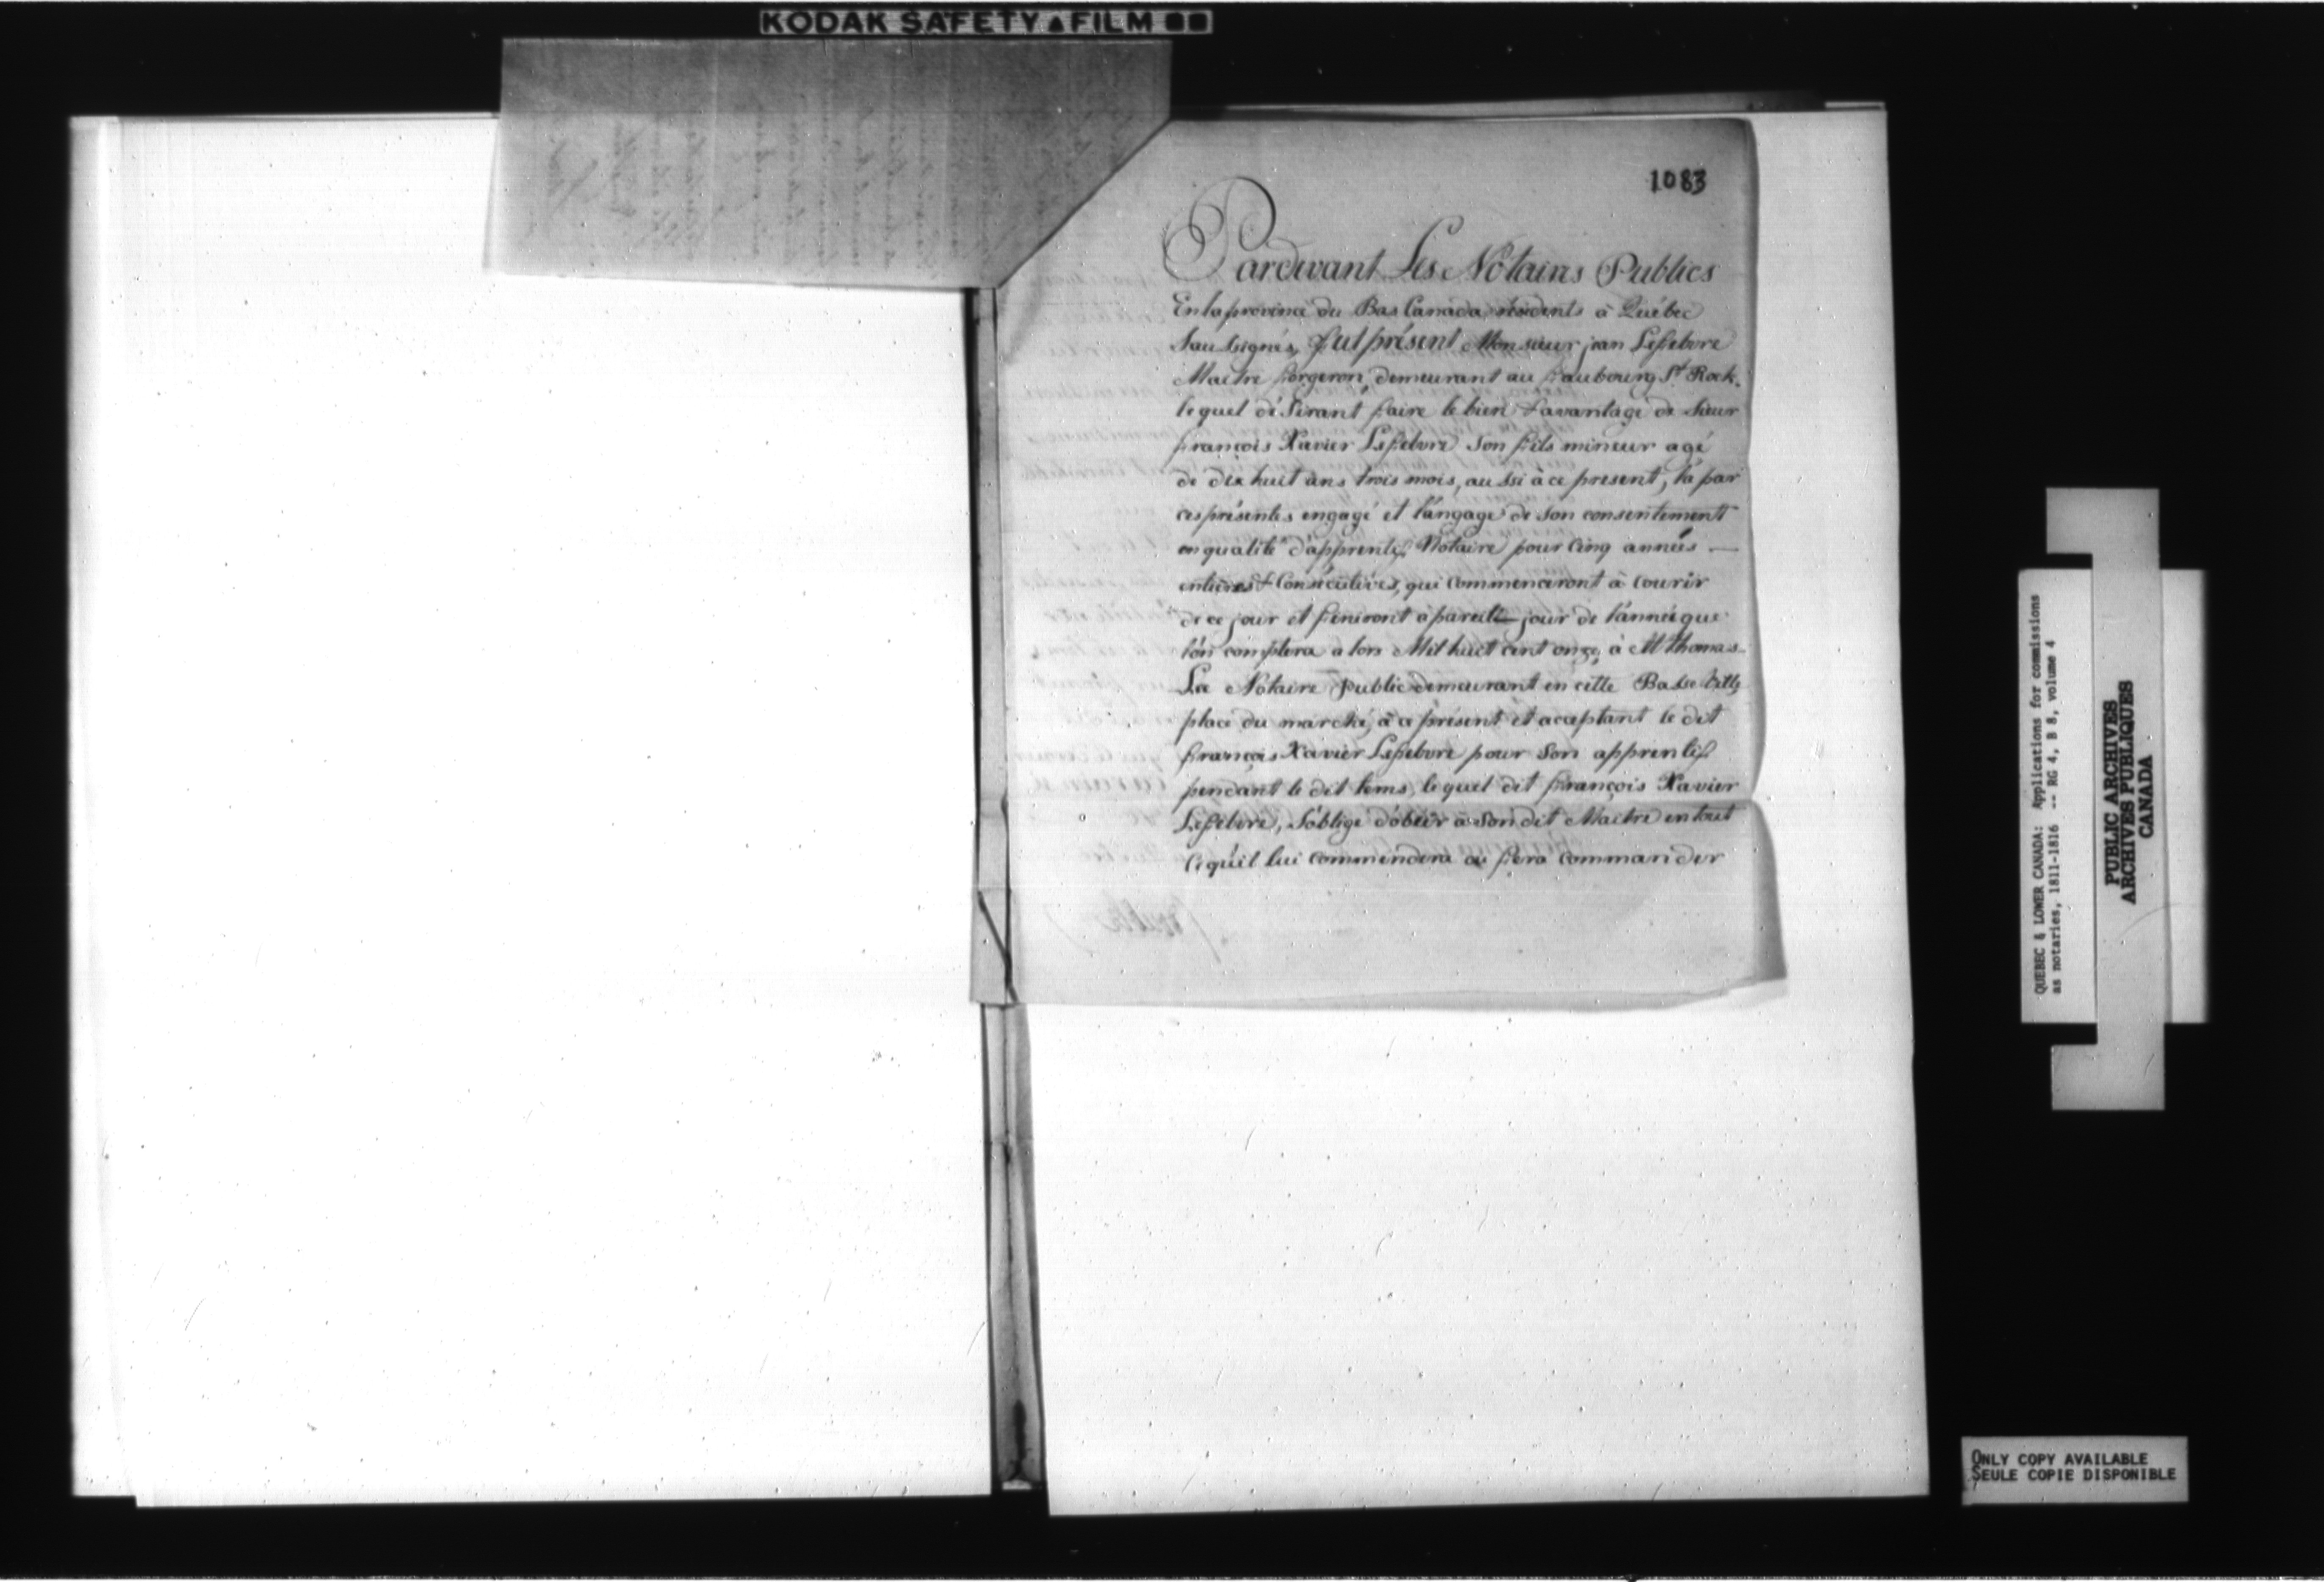 KODAK SAFETY FILM
1083
Pardevant Les Notaires Publics
En la province du Bas Canada résidents à Québec
Sousignés, fut présent Monsieur jean Lefebvre
Maitre forgeron, demeurant au faubourg St Rock.
lequel désirant faire le bien & avantage de Sieur
françois Xavier Lefebvre Son fils mineur agé
de dix huit ans trois mois, aussi à ce present, l'a par
ces présentes engagé et l'angage de Son consentement
en qualité d'apprentif Notaire pour Cinq années —
entieres & Consécutives, qui commenceront à courir
de ce jour et finiront à pareille jour de l'année que
l'on comptera alors Mil huit cent onze, à M Thomas
Lee Notaire public demeurant en cette Basse Ville
place du marché, à ce présent et acceptant le dit
françois Xavier Lefebvre pour Son apprentif
pendant le dit tems, lequel dit françois Xavier
Lefebvre, S'oblige d'obéir à Son dit Maitre en tout
Ce qu'il lui commendera ou fera commander
QUEBEC & LOWER CANADA: Applications for commissions
as notaries, 1811-1816 -- RG 4, B 8, volume 4
PUBLIC ARCHIVES
ARCHIVES PUBLIQUES
CANADA
ONLY COPY AVAILABLE
SEULE COPIE DISPONIBLE